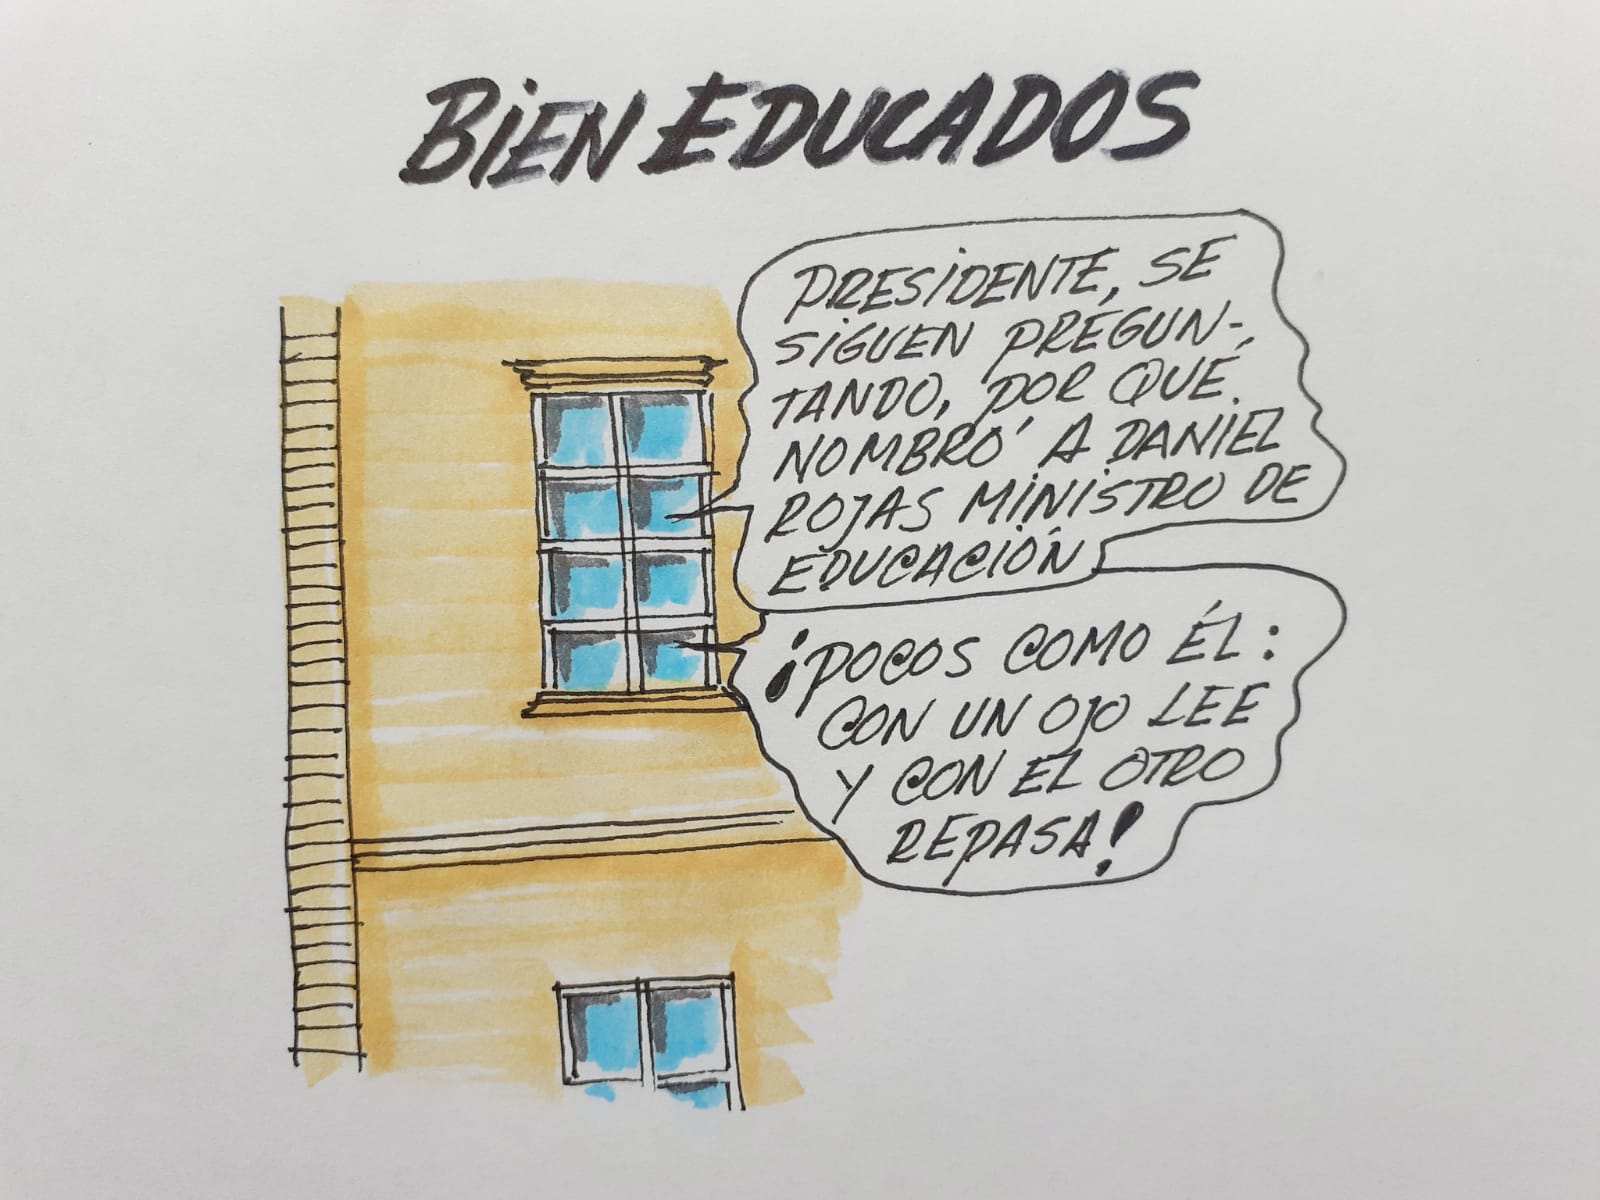 BIEN EDUCADOS
PRESIDENTE, SE
SIGUEN PREGUN-
TANDO, POR QUÉ
NOMBRÓ A DANIEL
ROJAS MINISTRO DE
EDUCACIÓN
¡POCOS COMO ÉL:
CON UN OJO LEE
Y CON EL OTRO
REPASA!